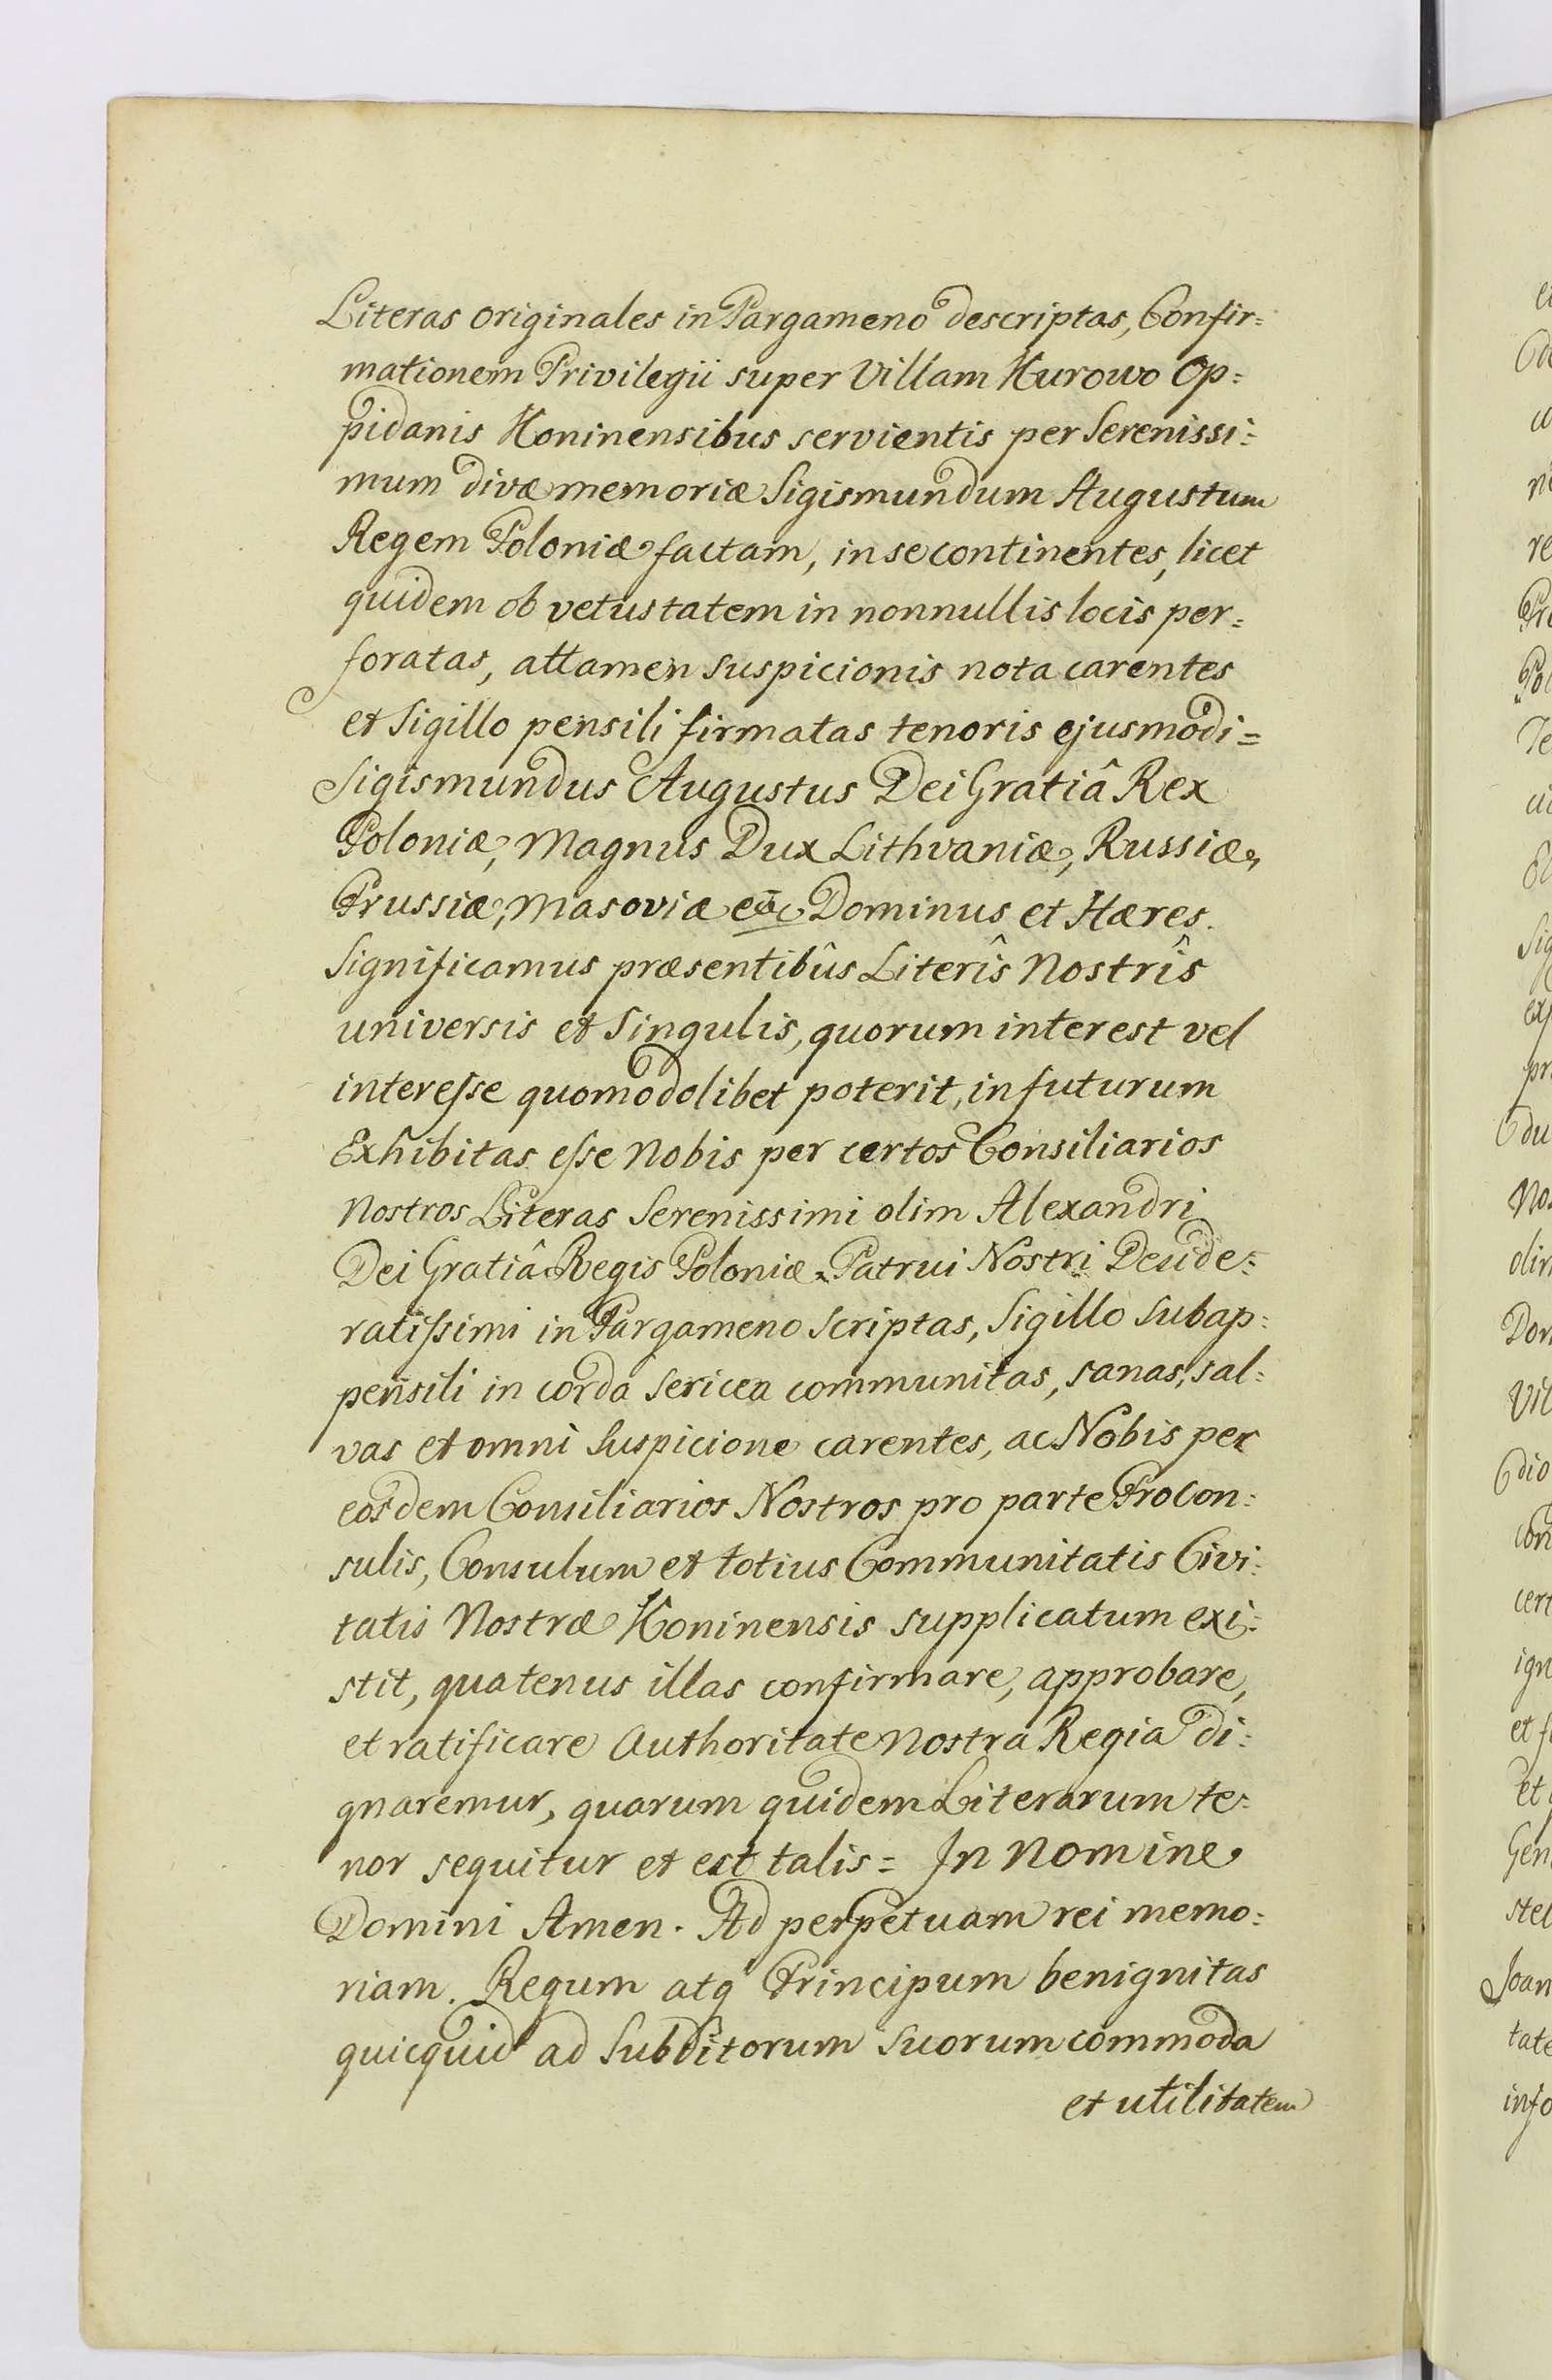 Literas originales in Pargameno descriptas, Confir=
mationem Privilegii super Villam Kurowo Op=
pidanis Koninensibus servientis per Serenissi=
mum divæ memoriæ Sigismundum Augustum
Regem Poloniæ factam, in se continentes, licet
quidem ob vetustatem in nonnullis locis per=
foratas, attamen suspicionis nota carentes
et Sigillo pensili firmatas tenoris ejusmodi=
Sigismundus Augustus Dei Gratiâ Rex
Poloniæ, Magnus Dux Lithvaniæ, Russiæ,
Prussiæ, Masoviæ etc Dominus et Hæres.
Significamus præsentibûs Literîs Nostrîs
universis et Singulis, quorum interest vel
interesse quomodolibet poterit, in futurum
Exhibitas esse Nobis per certos Consiliarios
Nostros Literas Serenissimi olim Alexandri
Dei Gratiâ Regis Poloniæ Patrui Nostri Deside=
ratissimi in Pargameno Scriptas, Sigillo Subap=
pensili in corda Sericea communitas, sanas, sal=
vas et omni Suspicione carentes, ac Nobis per
eosdem Consiliarios Nostros pro parte ProCon=
sulis, Consulum et totius Communitatis Civi=
tatis Nostræ Koninensis supplicatum exi=
stit, quatenus illas confirmare, approbare,
et ratificare Authoritate Nostra Regia di=
gnaremur, quarum quidem Literarum te=
nor sequitur et est talis= In Nomine
Domini Amen. Ad perpetuam rei memo=
riam. Regum atq Principum benignitas
quicquid ad Subditorum Suorum commoda
et utilitatem